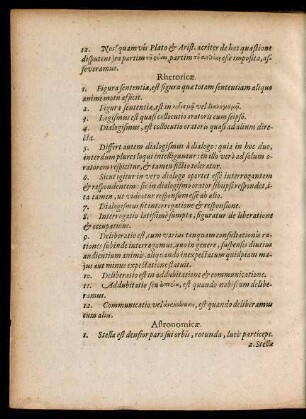 12. Nos (quamvis Plato & Arist. acriter de hac quæstione
disputent) ea partim τῇ φύσει partim τῇ θέσει esse imposita, as-
severamus.
Rhetoricæ.
1. Figura sententiæ, est figura quæ totam sententiam aliquo
animi motu afficit.
2. Figura sententiæ, est in vel
3. Logismus est quasi collocutio oratoris cum seipso.
4. Dialogismus, est collocutio oratoris quasi ad alium dire-
cta.
5. Differt autem dialogismus à dialogo: quia in hoc duo,
interdum plures loqui intelliguntur: in illo verò ad solum o-
ratorem respicitur, & tamen fictio toleratur.
6. Sicut igitur in vero dialogo oportet esse interrogantem
& respondentem: sic in dialogismo orator sibi ipsi respondet, i-
ta tamen, ut videatur respensum esse ab alio.
7. Dialogismus fit interrogatione & responsione.
8. Interrogatio latißimè sumpta, figuratur deliberatione
& occupatione.
9. Deliberatio est, cum varias tanquam consultationis ra-
tiones subinde interrogamus, quo in genere, suspensis diutius
audientium animis, aliquando inexpectatum quidpiam ma-
jus aut minus expectatione statuit.
10. Deliberatio est in addubitatione & communicatione.
11. Addubitatio seu ἀπορία, est quando nobiscum delibe-
ramus.
12. Communicatio, vel ἀνακοίνωσις, est quando deliberamus
cum aliis.
Astronomicæ.
1. Stella est densior pars sui orbis, rotunda, lucis particeps.
2. Stella